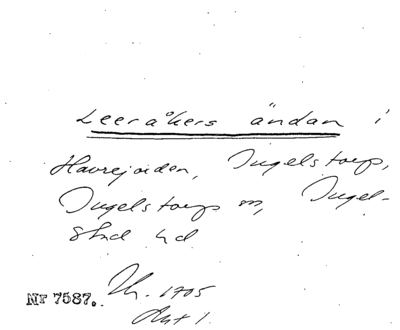 Leeråkers ändan i
Havrejorden, Ingelstorp,
Ingelstorps sn, Ingel-
stad hd
Nr 7587. Lh. 1705
Akt 1.